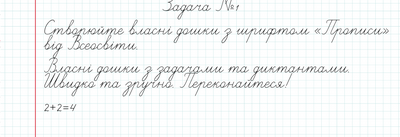 Задача №1
Створюйте власні дошки з шрифтом «Прописи»
від Всеосвіти.
Власні дошки з задачами та диктантами.
Швидко та зручно. Переконайтеся!
2+2=4